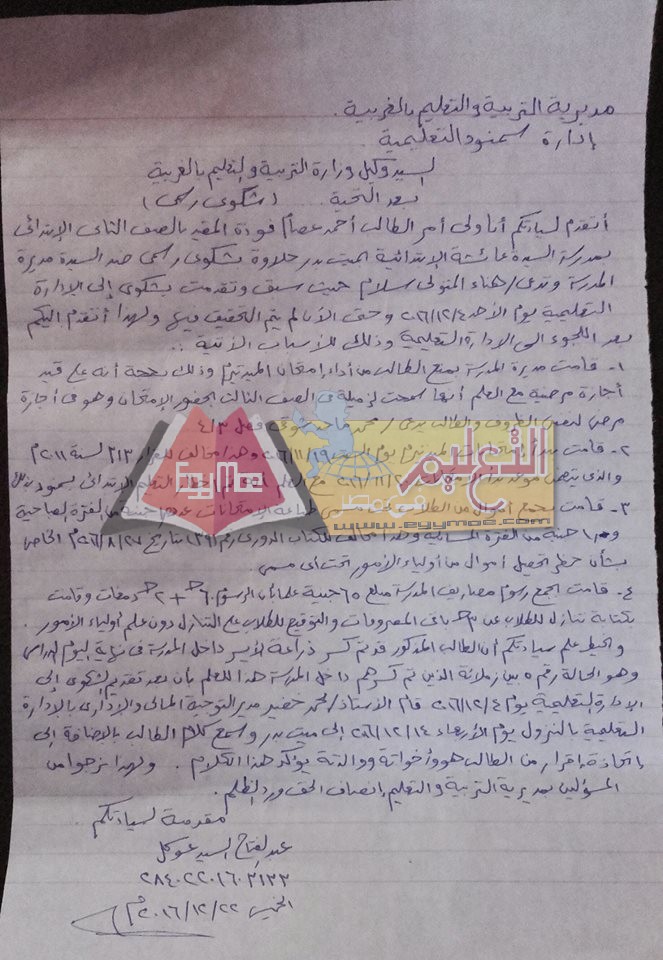 مديرية التربية والتعليم بالغربية
إدارة سمنود التعليمية
السيد وكيل وزارة التربية والتعليم بالغربية
بعد التحية (شكوى رسمى)
أتقدم لسيادتكم أنا ولى أمر الطالب أحمد عصام فودة المقيد بالصف الثانى الإبتدائى
بمدرسة السيدة عائشة الإبتدائية بميت بدر حلاوة بشكوى رسمى ضد السيدة مديرة
المدرسة وتدعى / هناء المتولى سلام حيث سبق وتقدمت بشكوى إلى الإدارة
التعليمية يوم الأحد ٢٠١٦/١٢/٤ وحتى الأن لم يتم التحقيق فيها ولهذا أتقدم اليكم
بعد اللجوء الى الإدارة التعليمية وذلك للأسباب الأتية ..
١- قامت مديرة المدرسة بمنع الطالب من أداء إمتحان الميدتيرم وذلك بحجة أنه على قيد
أجازة مرضية مع العلم أنها سمحت لزميله فى الصف الثالث بحضور الإمتحان وهو فى أجازة
مرضى لنفس الظروف والطالب يدعى / محمد ماجد فصل ٤/٣
٢- قامت الميدتيرم يوم ٢٠١٦/١١/١٩ وهذا مخالف للقرار ٣١٣ لسنة ٢٠١١م
والذى مع العلم التعليم الإبتدائى بسمنود
٣- قامت بجمع أموال من الطلاب طباعة الإمتحانات الفترة الصباحية
جنية من الفترة المسائية وهذا مخالف للكتاب الدورى رقم (٢٩) بتاريخ ٢٠١٦/٨/٢٧ الخاص
بشأن حظر تحصيل أموال من أولياء الأمور تحت أى مسمى
٤- قامت بجمع رسوم مصاريف المدرسة مبلغ ٦٥ جنية علما بأن الرسوم ٦٠ + ٢ دمغات وقامت
بكتابة تنازل للطلاب عن ٣ باقى المصروفات والتوقيع للطلاب على التنازل دون علم أولياء الأمور .
وأحيط علم سيادتكم أن الطالب المذكور قد تم كسر ذراعة الأيسر داخل المدرسة فى نهاية اليوم الدراسى
وهو الحالة رقم ٥ بين زملائة الذين تم كسرهم داخل المدرسة هذا للعلم بأن بعد تقديم الشكوى إلى
الإدارة التعليمية يوم ٢٠١٦/١٢/٤ قام الأستاذ / محمد خضير مدير التوجية المالى والإدارى بالإدارة
التعليمية بالنزول يوم الأربعاء ٢٠١٦/١٢/١٤ إلى ميت بدر وسمع كلام الطالب بالإضافة إلى
إتخاذة إقرار من الطالب هو وأخواتة ووالدتة يؤكد هذا الكلام . ولهذا نرجوا من
المسؤلين بمديرية التربية والتعليم إنصاف الحق ورد الظلم .
مقدمة لسيادتكم
عبد الفتاح السيد عوكل
الخميس ٢٠١٦/١٢/٢٢م
EgyMoe
التعليم
فى مصر
www.egymoe.com